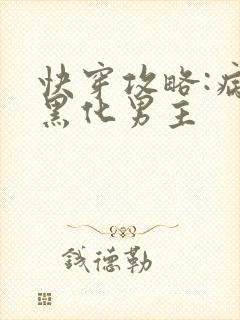 快穿攻略:病
黑化男主
钱德勒